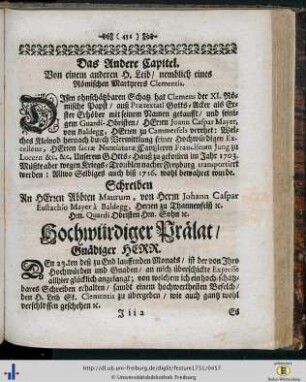 ( 451 )
Das Andere Capitel.
Von einem anderen H. Leib / nemblich eines
Römischen Martyrers Clementis.
DIsen ohnschätzbaren Schatz hat Clemens der XI. Rö-
mische Papst / auß Prætextati Gotts-Acker als Er-
ster Erhöber mit seinem Namen getaufft / und seini-
gem Guardi-Obristen / HErren Joann Caspar Mayer,
von Baldegg, HErren zu Cammersfels verehrt: Wel-
ches Kleinod hernach durch Vermittlung seiner Hochwürdigen Ex-
cellenz, HErren sacræ Nuntiaturæ Cantzleren Frantz Jung zu
Lucern &c. &c. Unserem GOtts-Hauß zu gekommen im Jahr 1703.
Müßte aber wegen Kriegs-Troublen nacher Freyburg transportiert
werden: Allwo Selbiges auch biß 1716. wohl bewahret wurde.
Schreiben
An HErren Abbten Maurum, von Herrn Johann Caspar
Eustachio Mayer à Baldegg, Herren zu Thannenfelß ꝛc.
Hrn. Quardi-Obristen Hrn. Sohn ꝛc.
Hochwürdiger Prälat /
Gnädiger HERR.
DEn 23. den deß zu End lauffenden Monats / ist der von Ihro
Hochwürden und Gnaden / an mich überschickte Expresse
allhier glücklich angelangt; von welchem ich ein hoch-schätz-
bares Schreiben erhalten / sambt einem hochwerthesten Befelch /
den H. Leib St. Clementis zu übergeben / wie auch gantz wohl
verschlossen geschehen ꝛc.
Jii 2
Es
http://dl.ub.uni-freiburg.de/diglit/fecture1731/0457
© Universitätsbibliothek Freiburg